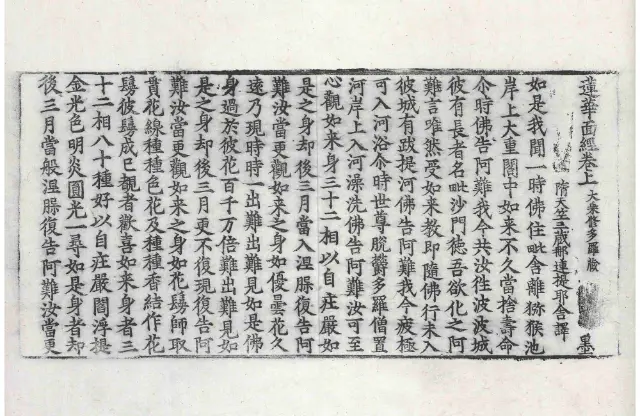 蓮華面經卷上 大乘修多羅藏 墨
隋天竺三藏那連提耶舍譯
如是我聞一時佛住毗舍離猕猴池
岸上大重閣中如来不久當捨壽命
尒時佛告阿難我今共汝往波波城
彼有長者名毗沙門德吾欲化之阿
難言唯然受如来教即隨佛行未入
彼城有跋提河佛告阿難我今疲極
可入河浴尒時世尊脫欝多羅僧置
河岸上入河澡洗佛告阿難汝可至
心觀如来身三十二相以自莊嚴如
是之身却後三月當入涅槃復告阿
難汝當更觀如来之身如優曇花久
遠乃現時時一出難出難見如是佛
身過於彼花百千万倍難出難見如
是之身却後三月更不復現復告阿
難汝當更觀如来之身如花鬘師取
貫花線種種色花及種種香結作花
鬘彼鬘成已覩者歡喜如来身者三
十二相八十種好以自莊嚴閻浮提
金光色明炎圓光一尋如是身者却
後三月當般涅槃復告阿難汝當更